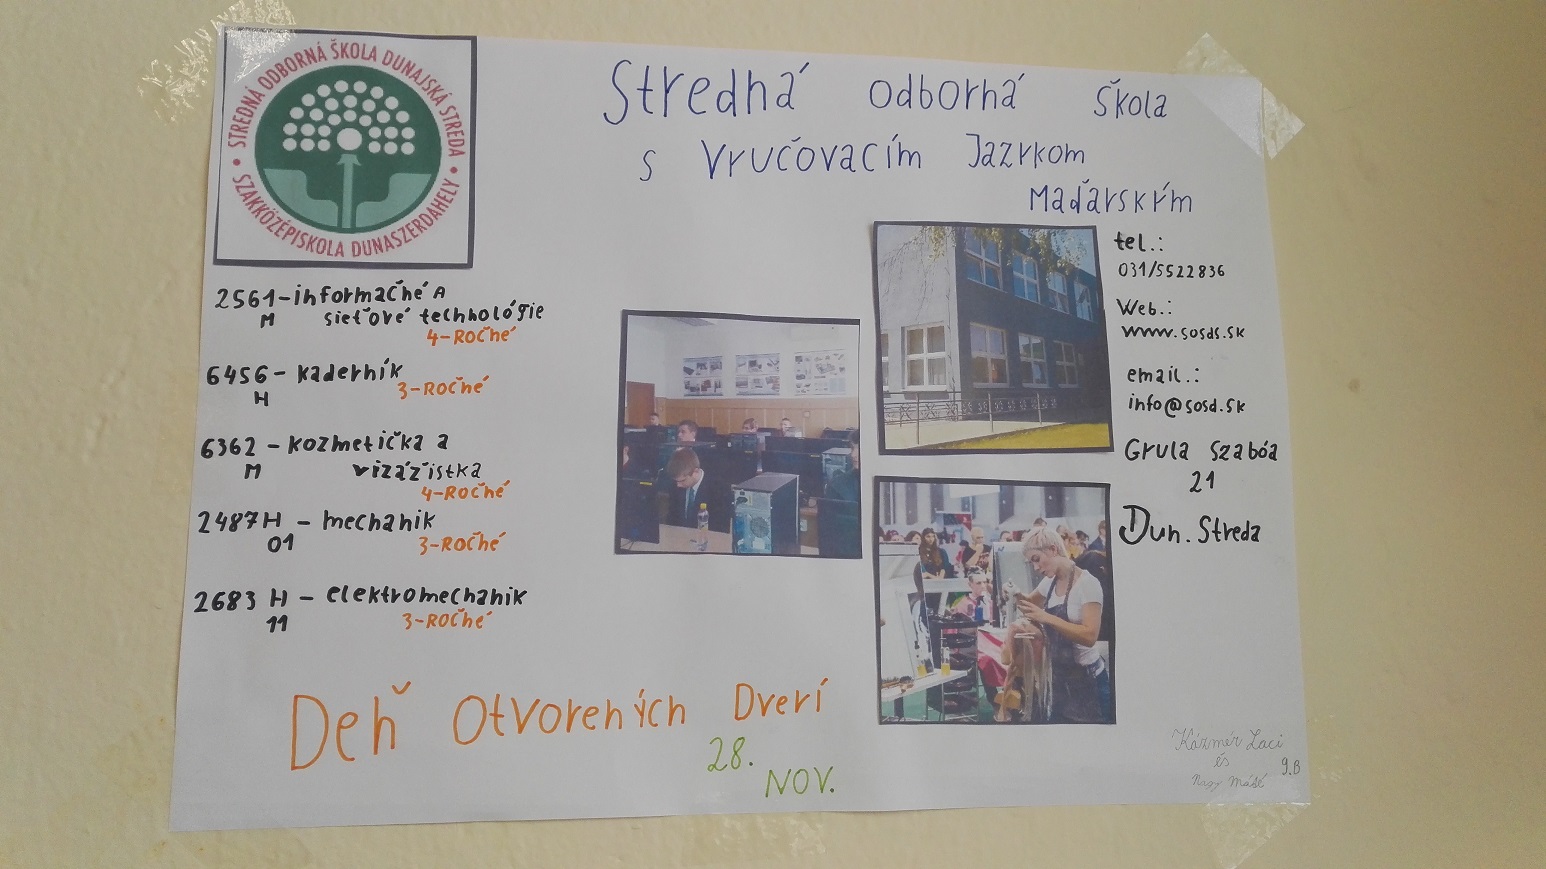 STREDNÁ ODBORNÁ ŠKOLA DUNAJSKÁ STREDA
SZAKKÖZÉPISKOLA DUNASZERDAHELY
Stredná odborná škola
s Vyučovacím Jazykom
Maďarským
2561 - informačné A
M sieťové technológie
4-Ročné
6456 - kaderník
H 3-Ročné
6362 - kozmetička a
M vizážistka
4-Ročné
2487 H - mechanik
01 3-Ročné
2683 H - elektromechanik
11 3-Ročné
tel.:
031/5522836
Web.:
www.sosds.sk
email.:
info@sosd.sk
Gyula Szabóa
21
Dun. Streda
Deň Otvorených Dverí
28.
NOV.
Kázmér Laci
és
Nagy Máté
9.B